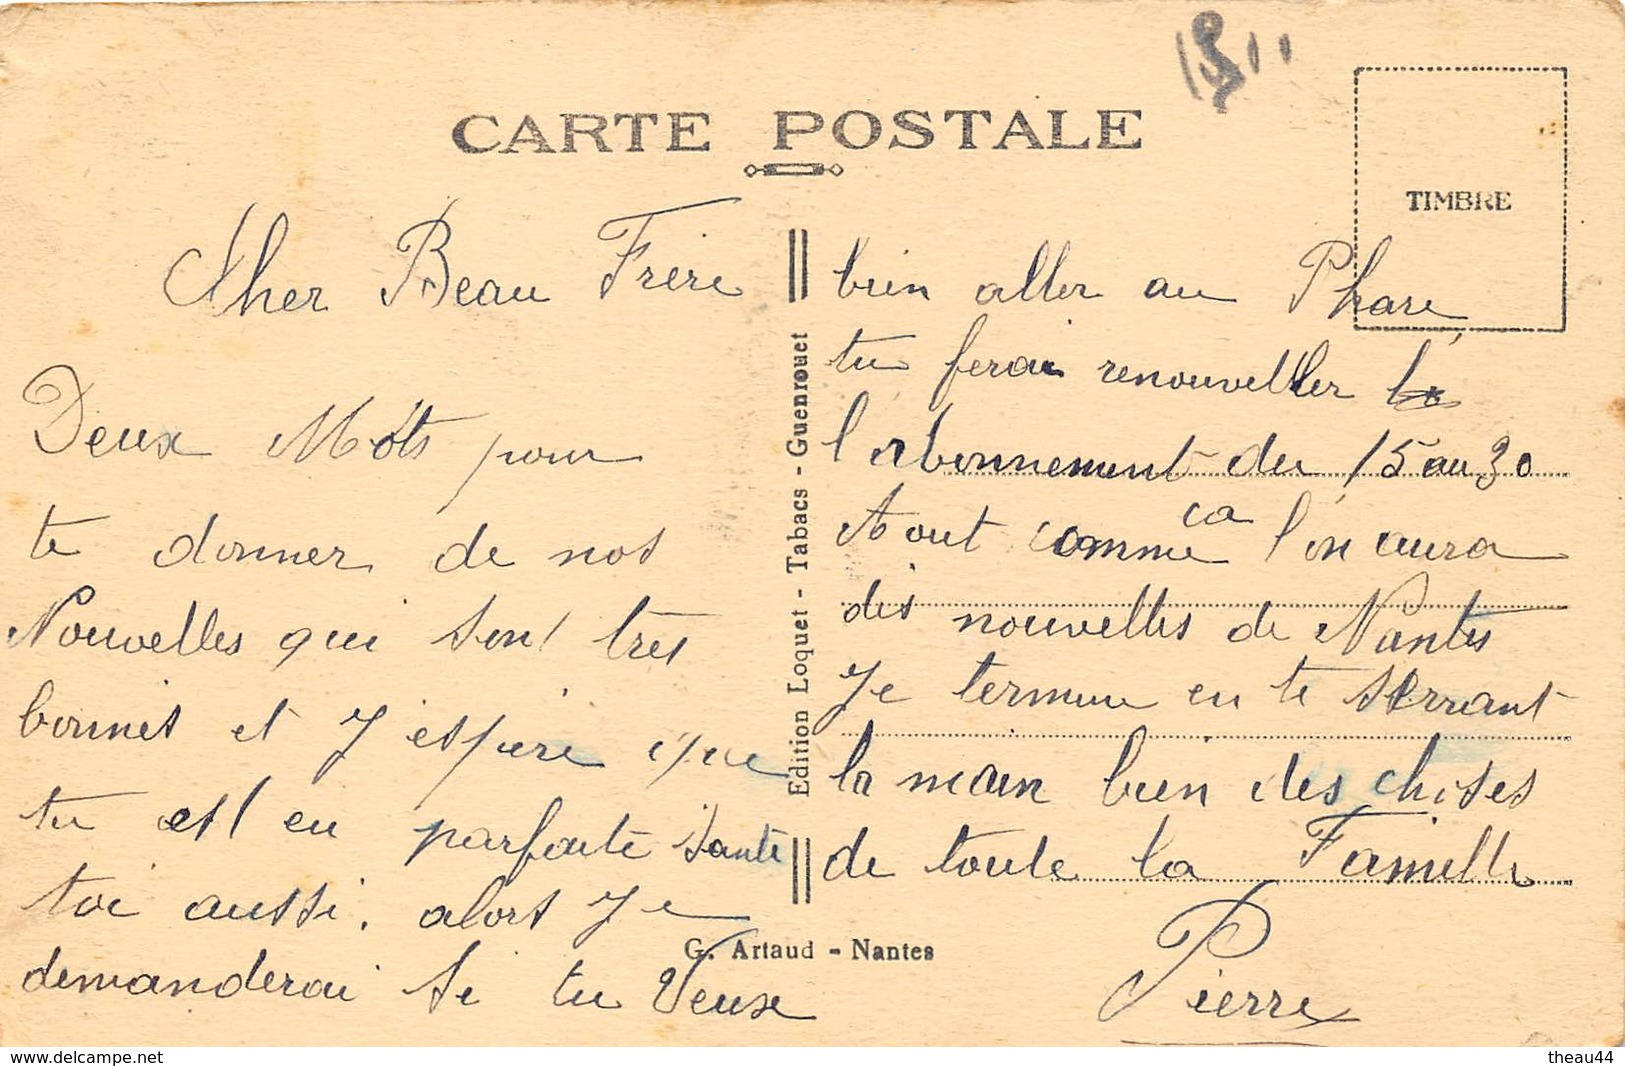 CARTE POSTALE
TIMBRE
Cher Beau Frère
Deux Mots pour
te donner de nos
Nouvelles qui sont très
bonnes et J'espère que
tu est en parfaite Santé
toi aussi, alors Je
demanderai Si tu Veux
Edition Loquet - Tabacs - Guenrouet
G. Artaud - Nantes
bien aller au Phare
tu ferai renouveller
l'abonnement du 15 au 30
Aout comme ça l'on aura
des nouvelles de Nantes
Je termine en te serrant
la main bien des choses
de toute la Famille
Pierre
delcampe.net
theau44